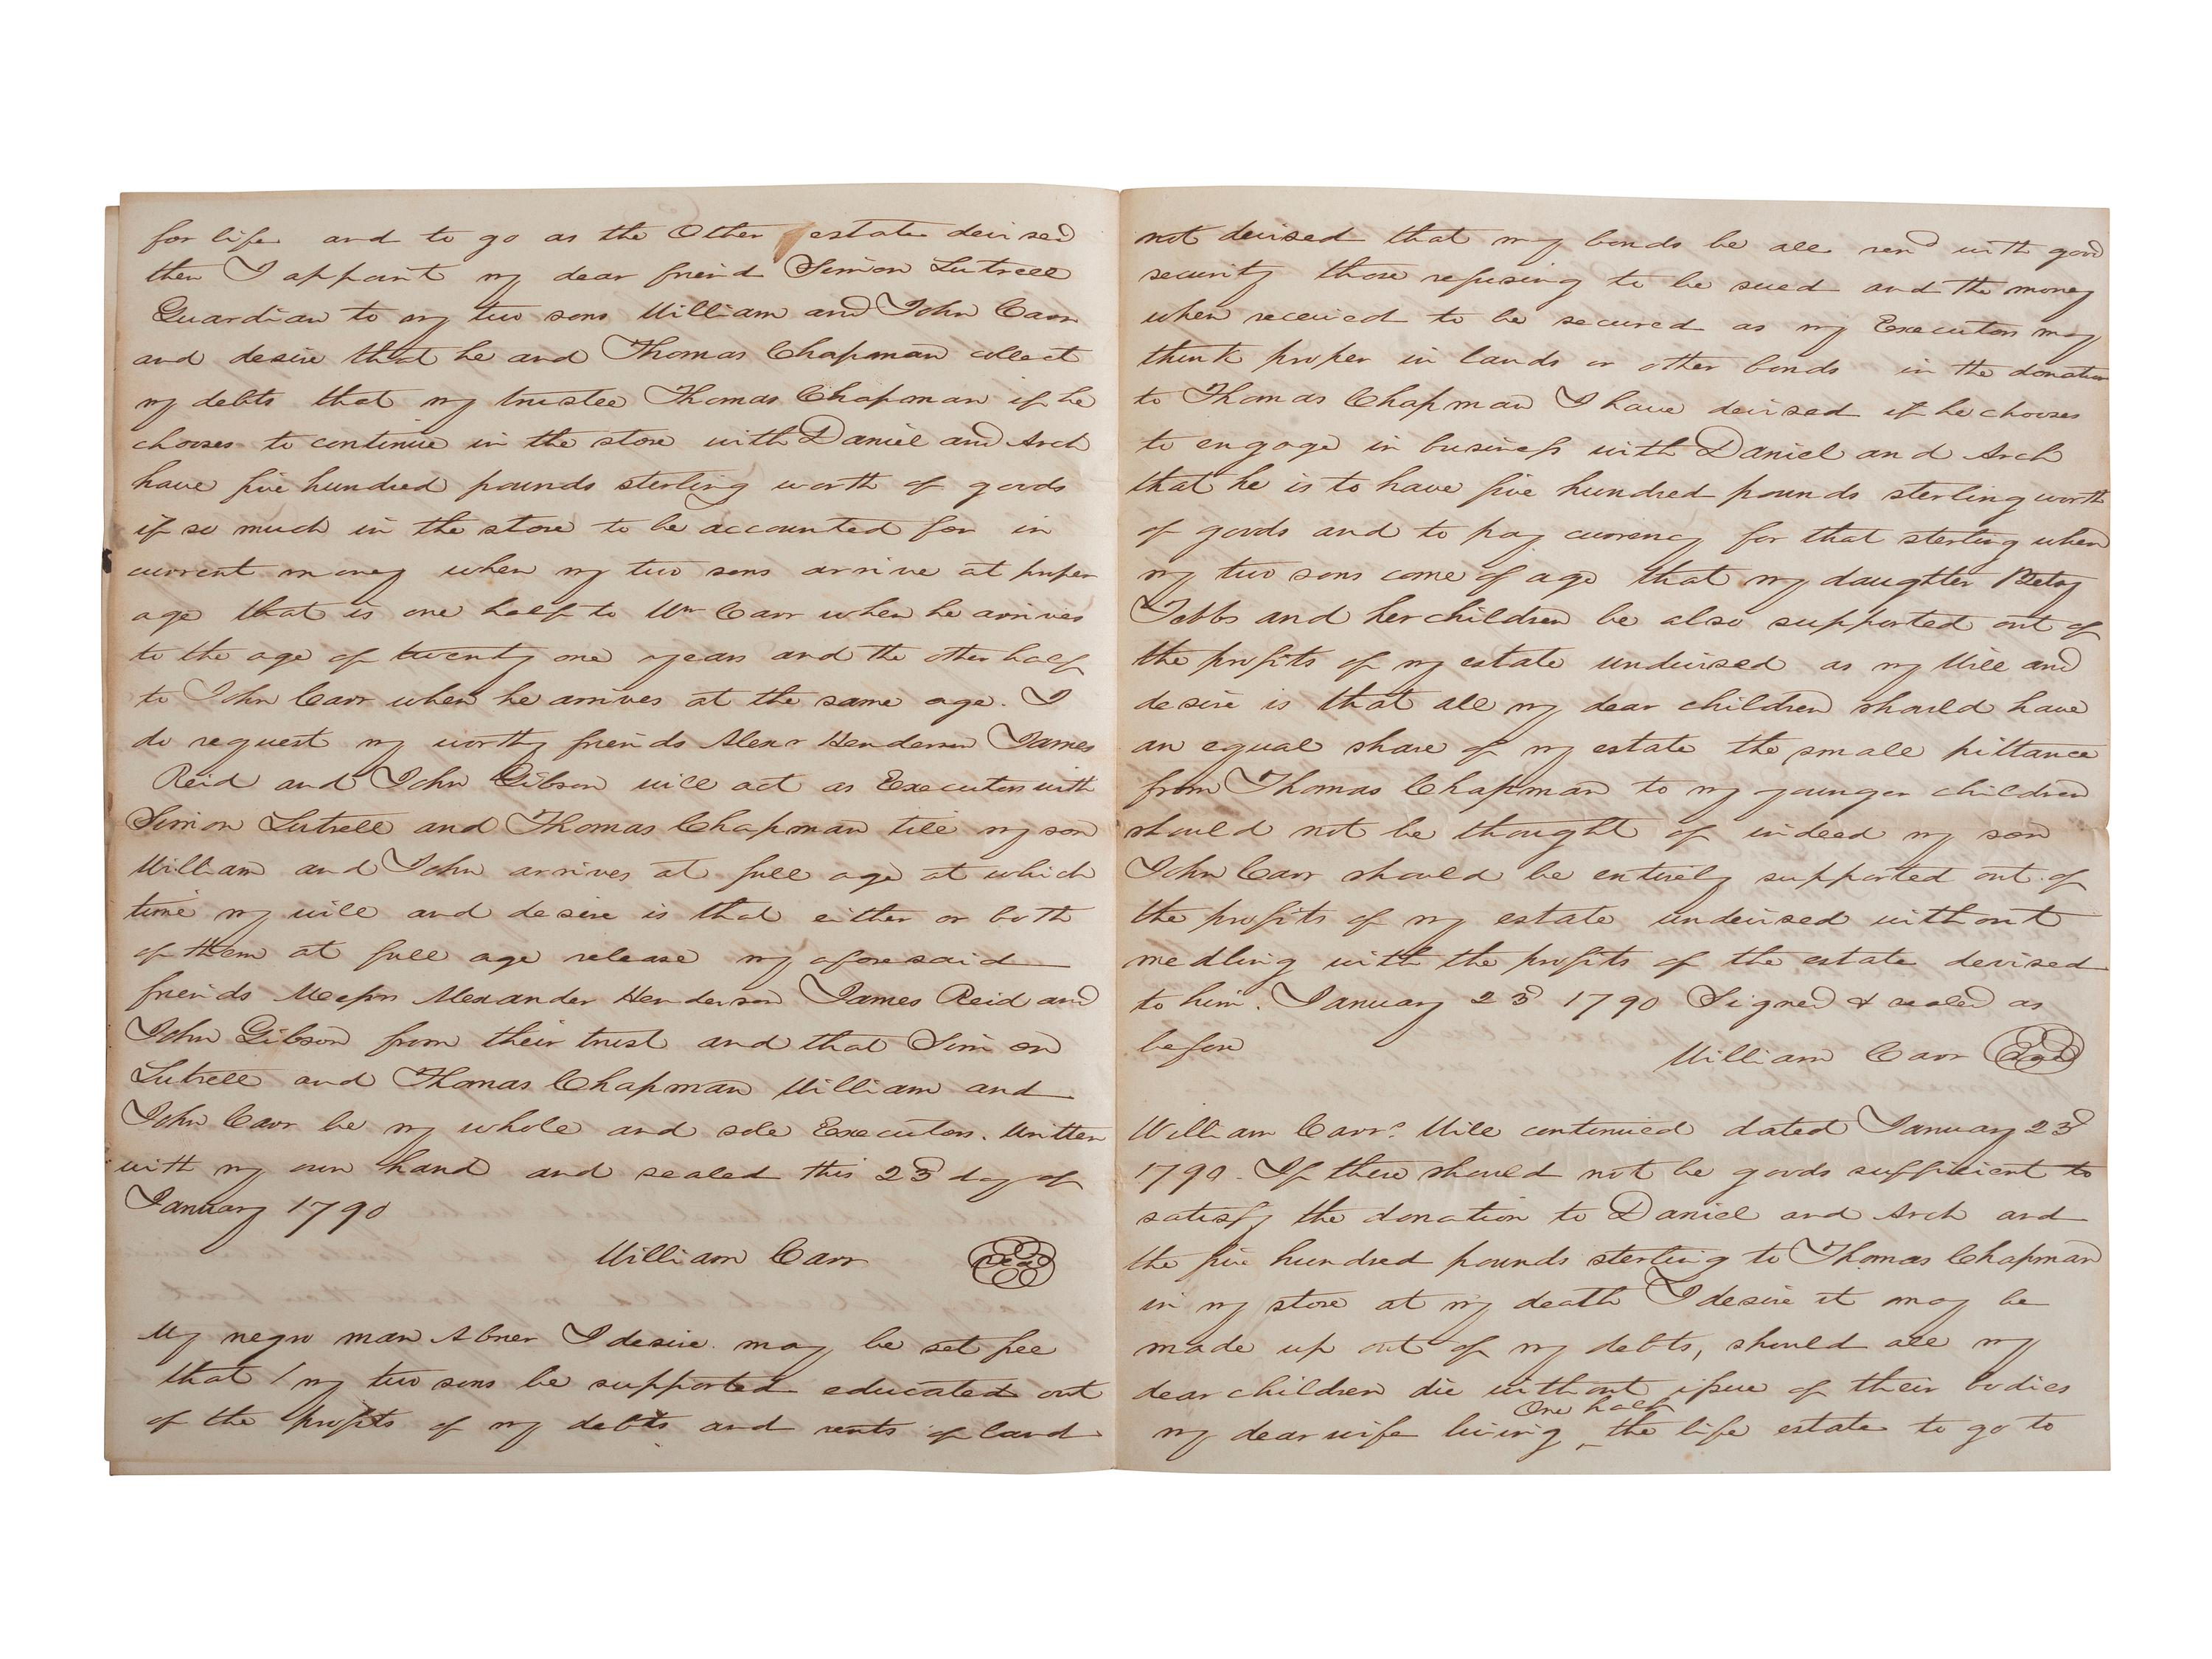 for life and to go as the Other estate devised
then I appoint my dear friend Simon Lutrell
Guardian to my two sons William and John Carr
and desire that he and Thomas Chapman collect
my debts that my trustee Thomas Chapman if he
chooses to continue in the store with Daniel and Arch
have five hundred pounds sterling worth of goods
if so much in the store to be accounted for in
current money when my two sons arrive at proper
age that is one half to Wm Carr when he arrives
to the age of twenty one years and the other half
to John Carr when he arrives at the same age. I
do request my worthy friends Alexr Henderson James
Reid and John Gibson will act as Executors with
Simon Lutrell and Thomas Chapman till my son
William and John arrives at full age at which
time my will and desire is that either or both
of them at full age release my aforesaid
friends Messrs Alexander Henderson James Reid and
John Gibson from their trust and that Simon
Lutrell and Thomas Chapman William and
John Carr be my whole and sole Executors. Written
with my own hand and sealed this 23d day of
January 1790
William Carr Seal
My negro man Abner I desire may be set free
that my two sons be supported educated out
of the profits of my debts and rents of land
not devised that my bonds be all rend with good
security those refusing to be sued and the money
when received to be secured as my Executors may
think proper in lands or other bonds in the donation
to Thomas Chapman I have devised if he chooses
to engage in business with Daniel and Arch
that he is to have five hundred pounds sterling worth
of goods and to pay currency for that sterling when
my two sons come of age that my daughter Betsy
Tebbs and her children be also supported out of
the profits of my estate undevised as my Will and
desire is that all my dear children should have
an equal share of my estate the small pittance
from Thomas Chapman to my younger children
should not be thought of indeed my son
John Carr should be entirely supported out of
the profits of my estate undevised without
medling with the profits of the estate devised
to him. January 23d 1790 Signed & sealed as
before William Carr Seal
William Carrs Will continued dated January 23d
1790. If there should not be goods sufficient to
satisfy the donation to Daniel and Arch and
the five hundred pounds sterling to Thomas Chapman
in my store at my death I desire it may be
made up out of my debts, should all my
dear children die without issue of their bodies
One half
my dear wife living the life estate to go to